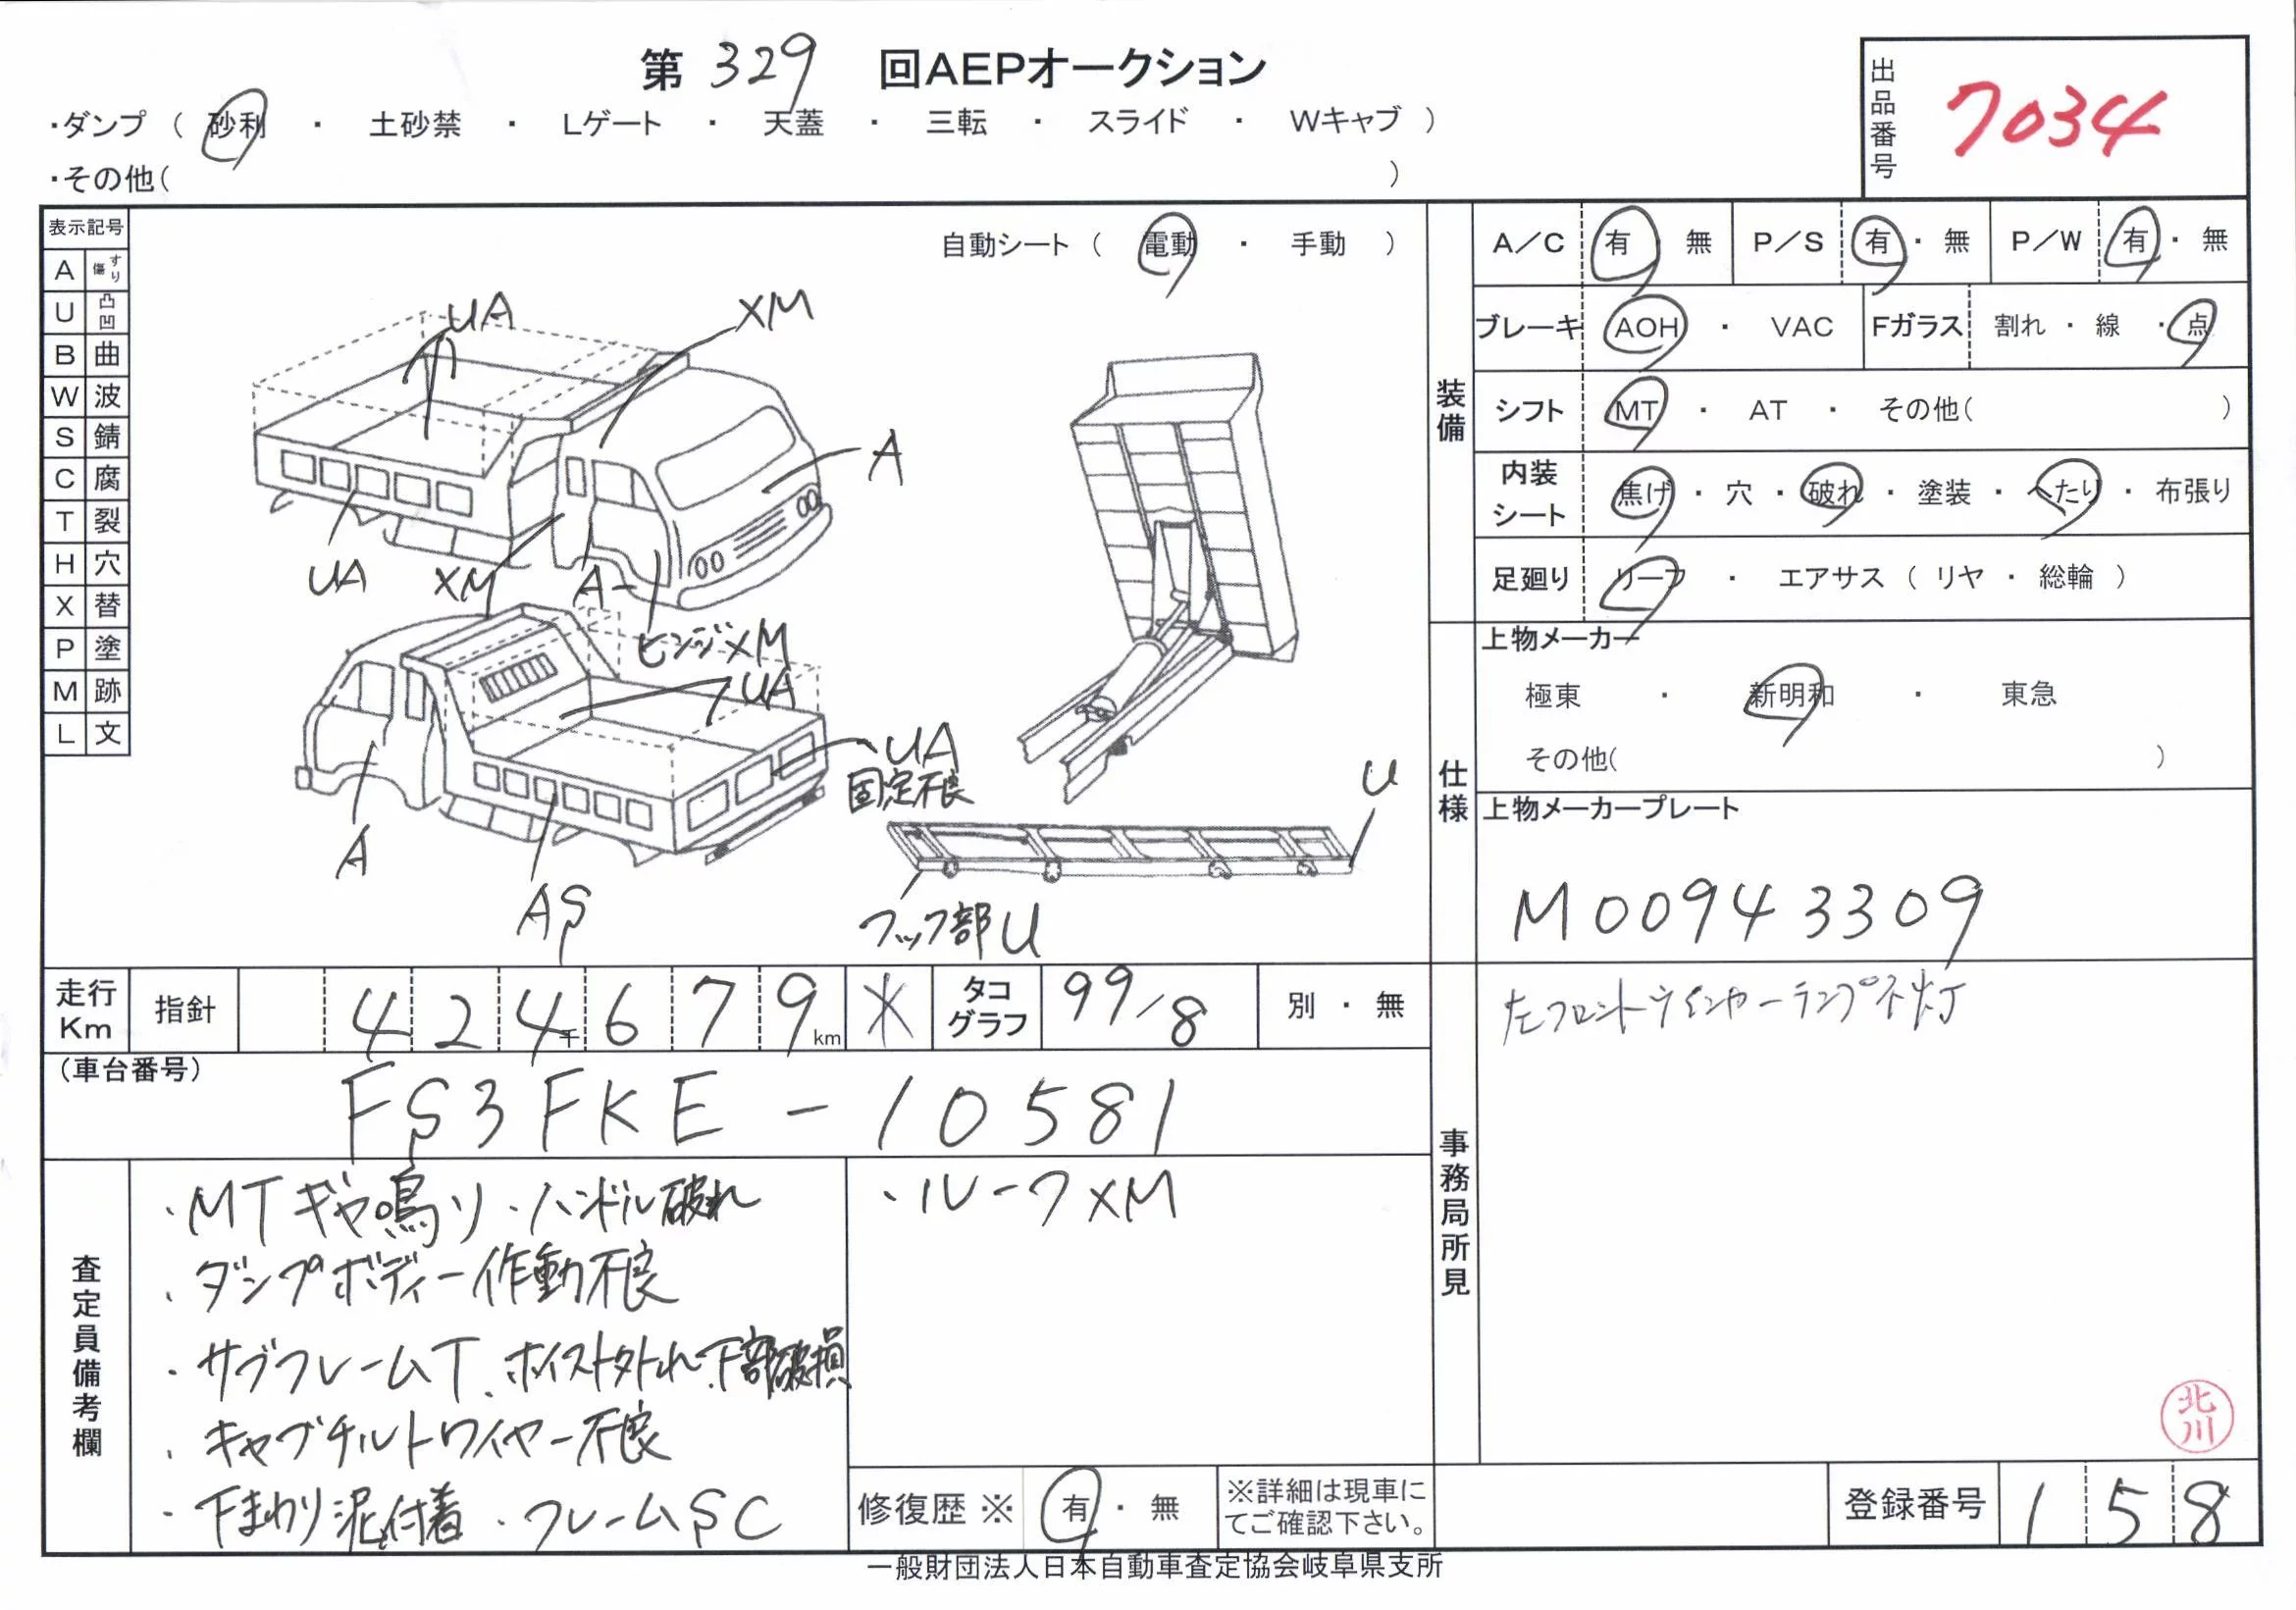 第 329 回AEPオークション
・ダンプ ( 砂利 ・ 土砂禁 ・ Lゲート ・ 天蓋 ・ 三転 ・ スライド ・ Wキャブ )
・その他( )
出品番号
7034
表示記号
A すり傷
U 凸凹
B 曲
W 波
S 錆
C 腐
T 裂
H 穴
X 替
P 塗
M 跡
L 文
自動シート ( 電動 ・ 手動 )
UA
XM
A
UA
XM
A
ヒンジXM
UA
UA
固定不良
A
AS
U
フック部U
装備
A/C 有 無 P/S 有・無 P/W 有・無
ブレーキ AOH ・ VAC Fガラス 割れ・線・点
シフト MT ・ AT ・ その他( )
内装シート 焦げ・穴・破れ・塗装・へたり・布張り
足廻り リーフ ・ エアサス ( リヤ ・ 総輪 )
仕様
上物メーカー
極東 ・ 新明和 ・ 東急
その他( )
上物メーカープレート
M00943309
走行Km 指針 424千679km ※ タコグラフ 99/8 別・無
(車台番号)
FS3FKE-10581
査定員備考欄
・MTギヤ鳴り・ハンドル破れ
・ダンプボディー作動不良
・サブフレームT、ホイスト外れ、下部破損
・キャブチルトワイヤー不良
・下まわり泥付着・フレームSC
・ルーフXM
修復歴※ 有・無 ※詳細は現車にてご確認下さい。
事務局所見
左フロントウインカーランプ不灯
北川
登録番号 158
一般財団法人日本自動車査定協会岐阜県支所